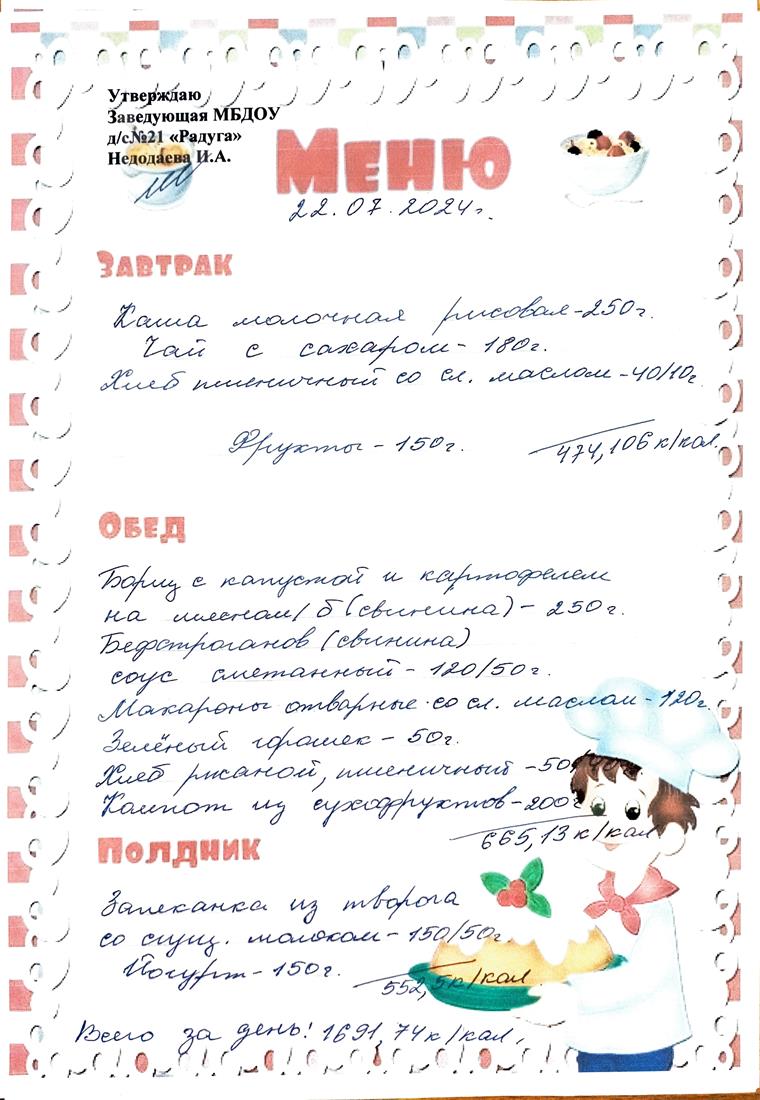 Утверждаю
Заведующая МБДОУ
д/с№21 «Радуга»
Недодаева И.А.
Меню
22.07.2024г.
Завтрак
Каша молочная рисовая-250г.
Чай с сахаром- 180г.
Хлеб пшеничный со сл. маслом -40/10г
Фрукты - 150г.
474,106 к/кал
Обед
Борщ с капустой и картофелем
на мясном/б (свинина) - 250г.
Бефстроганов (свинина)
соус сметанный - 120/50г.
Макароны отварные со сл. маслом - 120г.
Зелёный горошек - 50г.
Хлеб ржаной, пшеничный -50/
Компот из сухофруктов-200г
665,13 к/кал
Полдник
Запеканка из творога
со сгущ. молоком- 150/50г.
Йогурт- 150г.
552,5к/кал
Всего за день! 1691,74 к/кал.